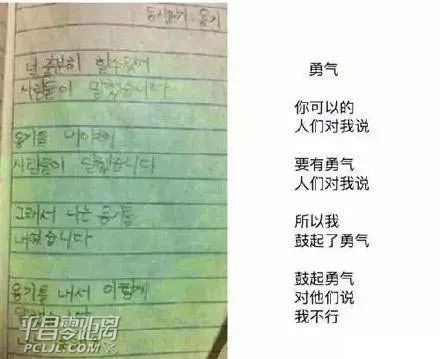 용기
넌 충분히 할수있어
사람들이 말했습니다
용기를 내야해
사람들이 말했습니다
그래서 나는 용기를
내었습니다
용기를 내서 이렇게
勇气
你可以的
人们对我说
要有勇气
人们对我说
所以我
鼓起了勇气
鼓起勇气
对他们说
我不行
平昌零距离
PCLJL.COM